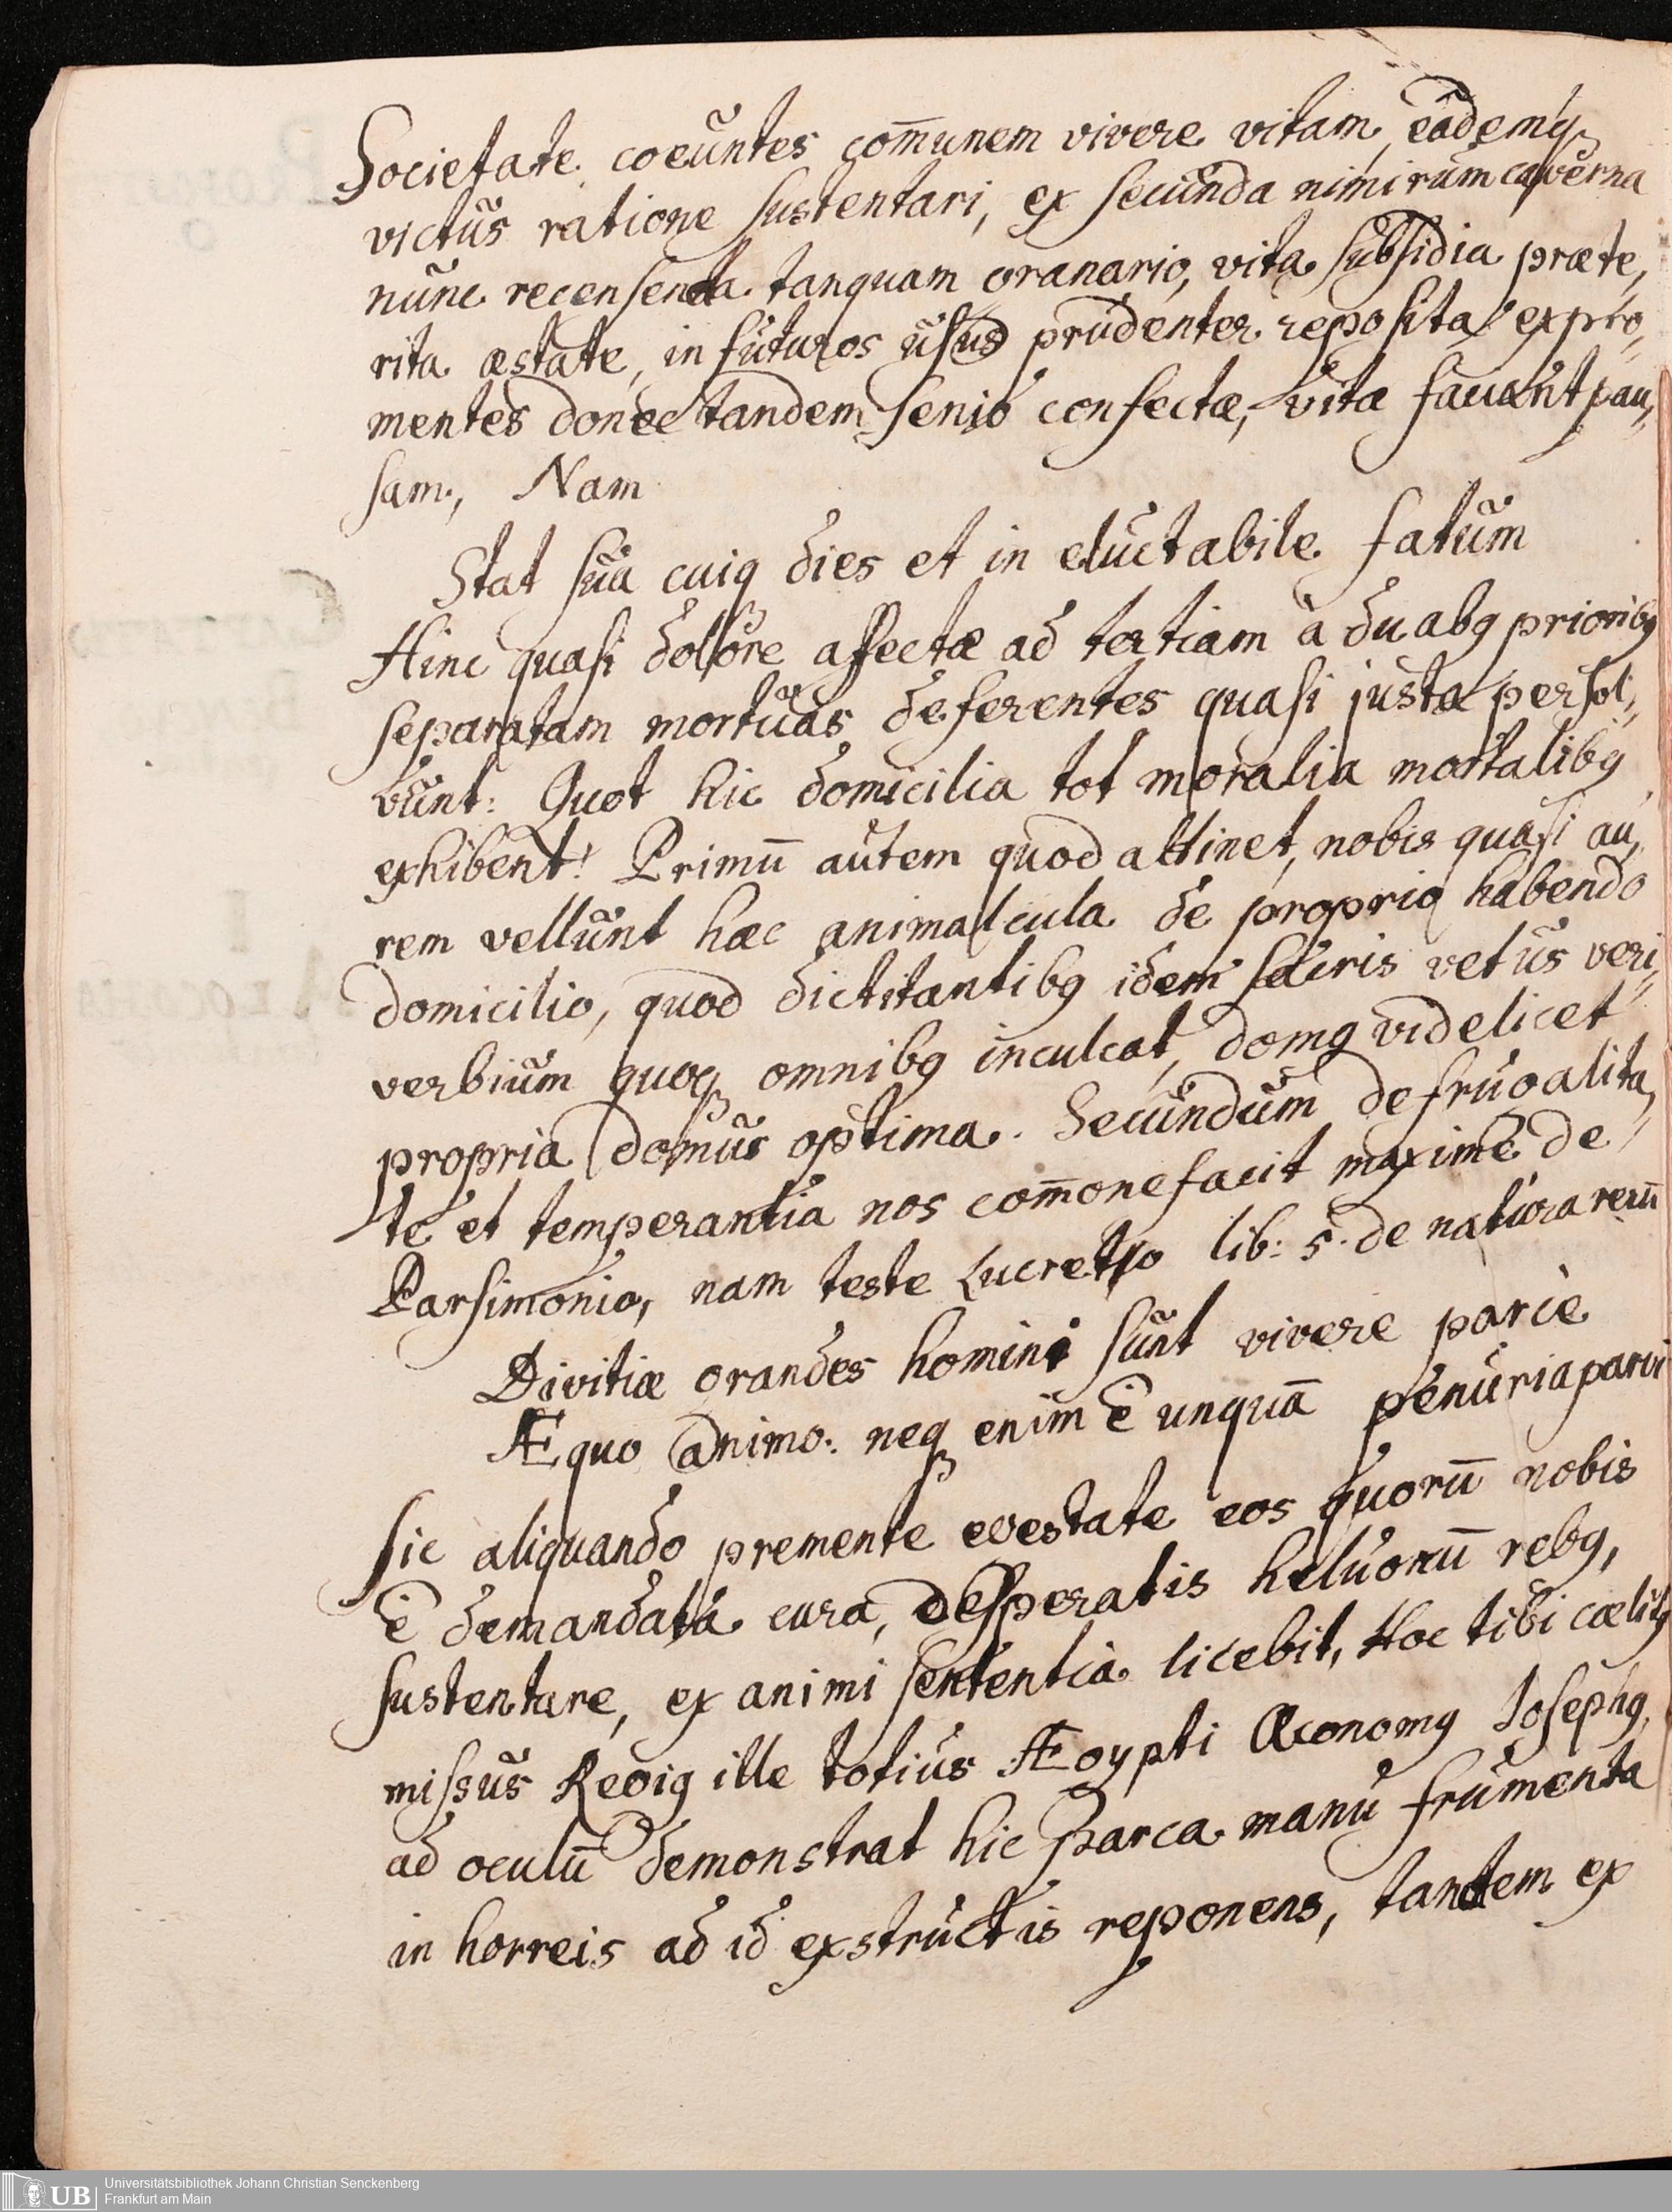 Societate coeũntes com̄unem vivere vitam, eâdemq;
victũs ratione sustentari, ex secũnda nimirũm caverna
nũnc recensenda tanquam granario, vitæ sũbsidia præte,,
rita æstate, in fũtũros ũsus prũdenter reposita expro,,
mentes donec tandem senio confectæ, vitæ faciant pau,,
sam., Nam
Stat sũa cuiq; dies et in elũctabile fatũm
Hinc quasi dolore affectæ ad tertiam à duabꝯ prioribꝯ
separatam mortũas deferentes quasi jũsta persol,,
vũnt: Quot hic domicilia tot moralia mortalibꝯ
exhibent! Primū aũtem quod attinet, nobis quasi au,,
rem vellũnt hæc animalcula de proprio habendo
domicilio, quod dictitantibꝯ idem sũeris vetũs veri,,
verbiũm quoq; omnibꝯ incũlcat, domꝯ videlicet
propria domũs optima. Secũndũm de frũgalita,,
te et temperantia nos com̄onefacit maximè de
Parsimonia, nam teste Lucretio lib: 5. de natũra rerū
Divitiæ grandes homini sũnt vivere parcè
Æquo animo: neq; enim ê unquā penũria parvi
sic aliquando premente egestate eos quorū nobis
ê demandata cura, desperatis helũonū rebꝯ,
sustentare, ex animi sententia licebit, Hoc tibi cœlitꝯ
missũs Regiꝯ ille totiũs Ægypti Œconomꝯ Josephꝯ,
ad oculū demonstrat hic parca manũ frũmenta
in horreis ad id exstrũctis reponens, tandem ex
UB Universitätsbibliothek Johann Christian Senckenberg
Frankfurt am Main